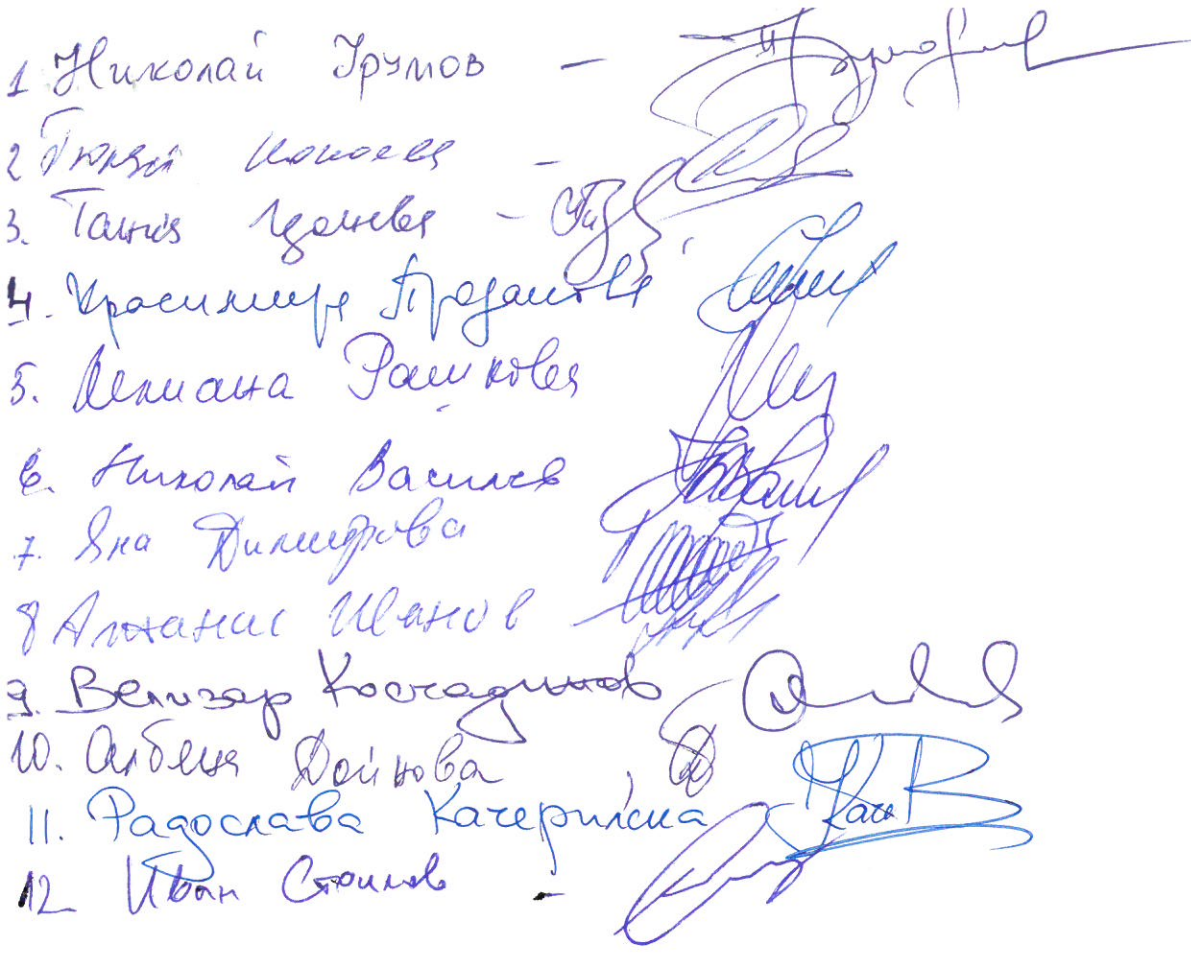 1 Николай Урумов -
2 Гюлай -
3. Таня -
4. Красимира Проданова
5. Лилиана Рашкова
6. Николай Василев
7. Яна Димитрова
8 Атанас Иванов -
9. Велизар Костадинов
10. Албена Дойнова
11. Радослава Качерилска
12 Иван Стоилов -